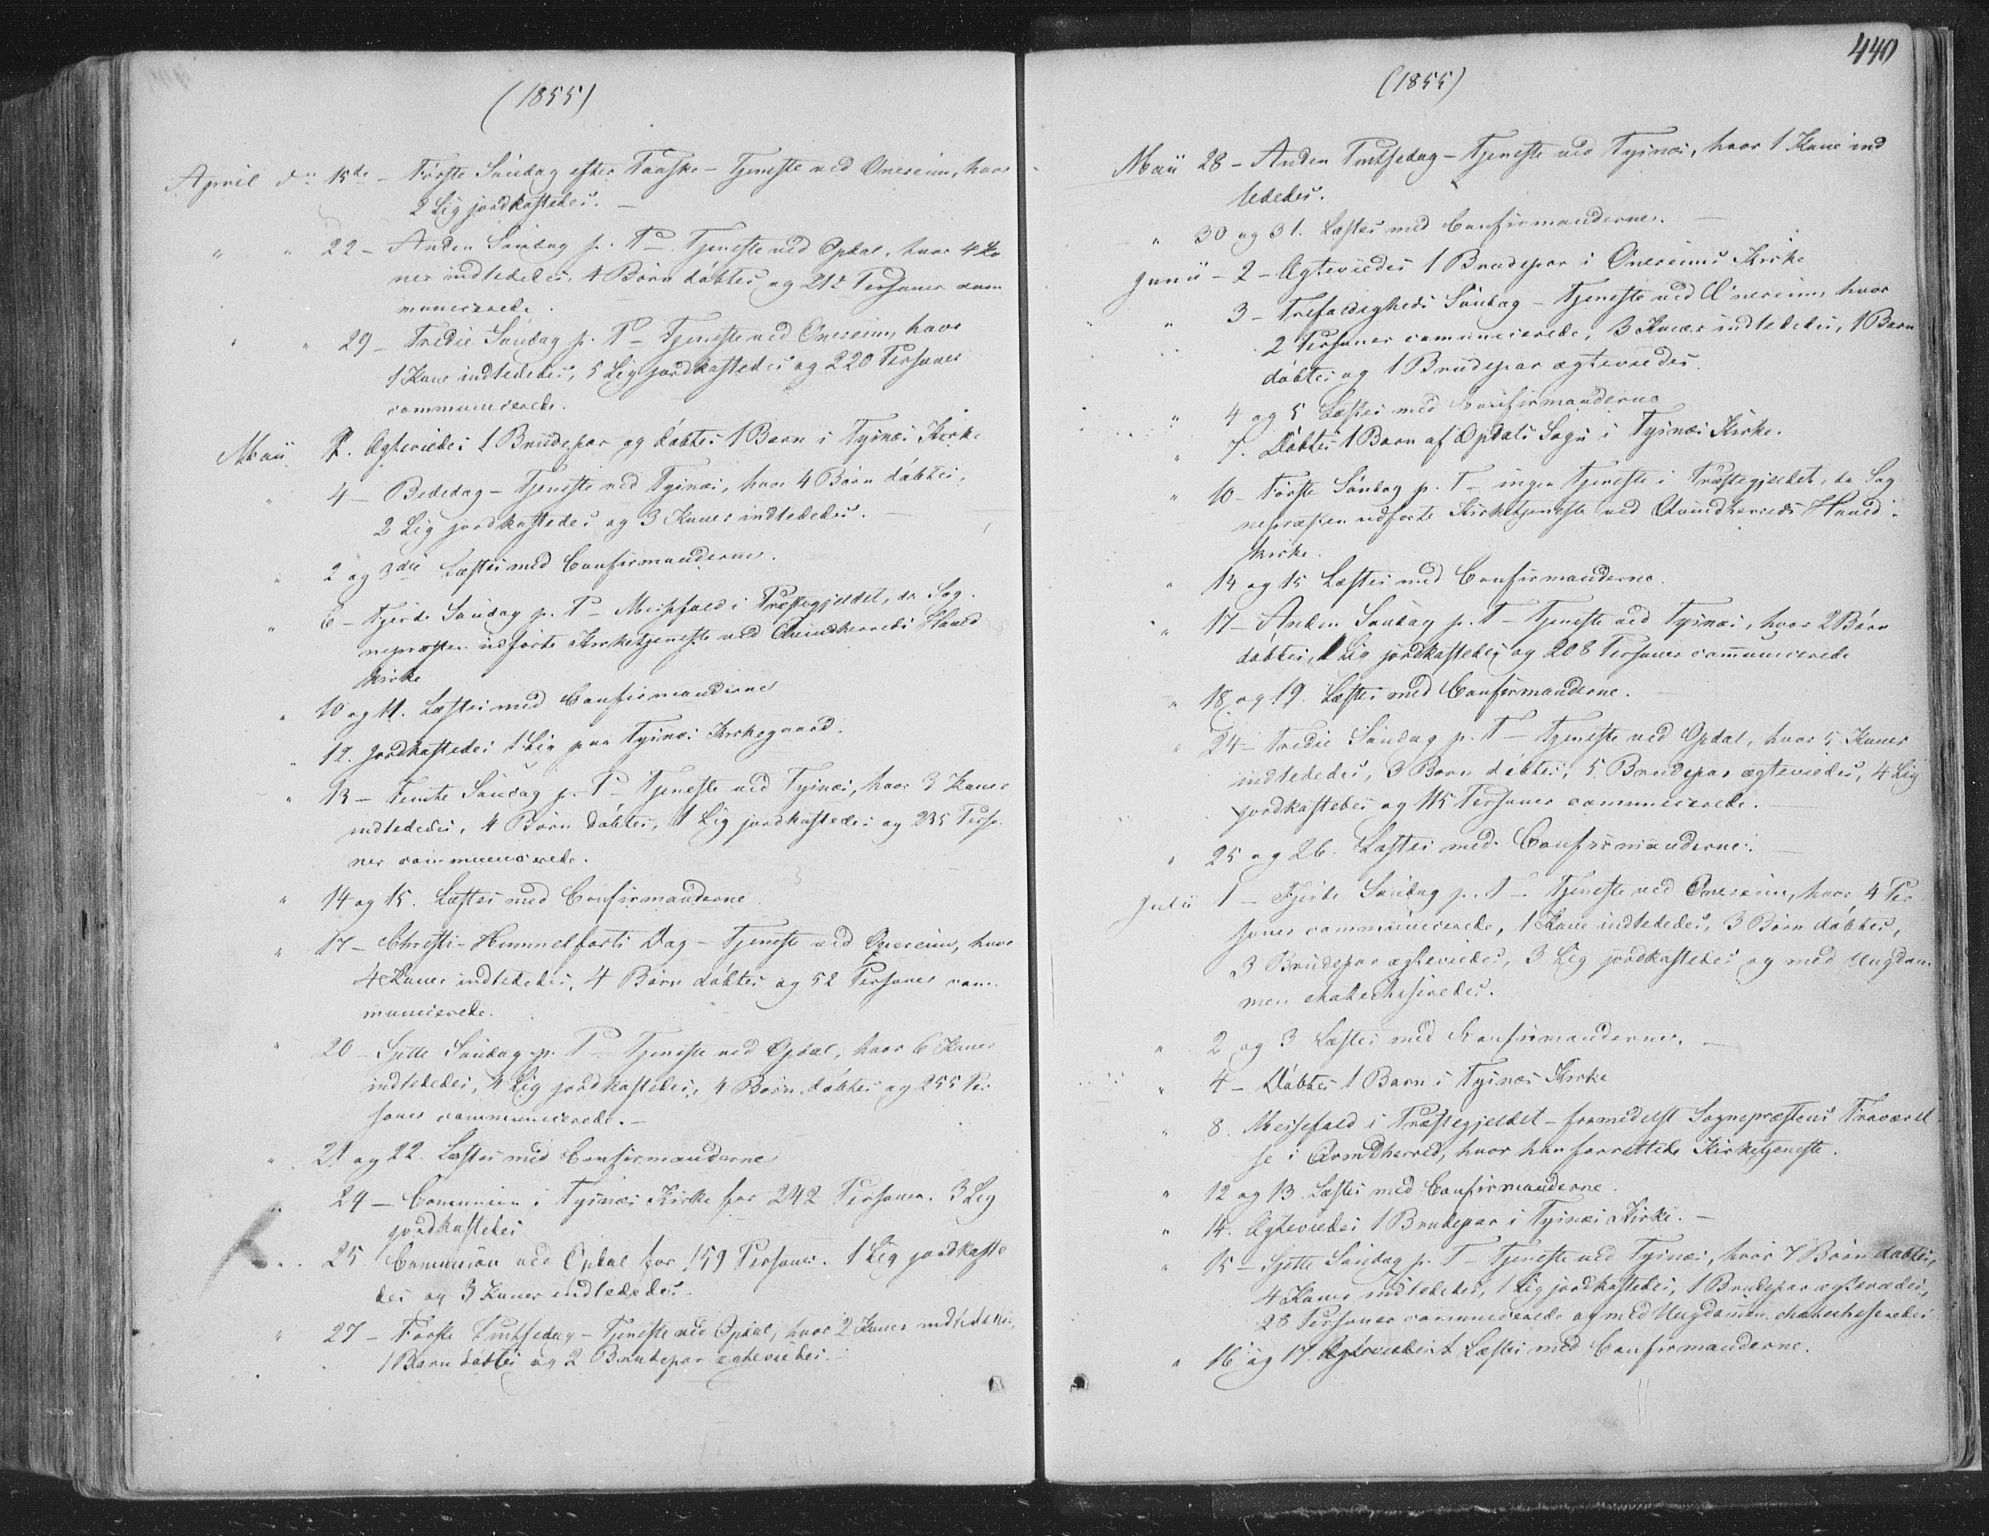 (1855)
April d: 15de – Første Søndag efter Paaske – Tjeneste ved Onereim, hvor
2 Lig jordkastedes. –
" " 22 – Anden Søndag p. P – Tjeneste ved Opdal, hvor 4 Ko
ner indlededes, 4 Børn døbtes og 212 Personer com
municerede.
" " 29 – Tredie Søndag p. P – Tjeneste ved Onereim, hvor
1 Kone indlededes, 5 Lig jordkastedes og 220 Personer
communicerede.
Maii 1. Ægteviedes 1 Brudepar og døbtes 1 Barn i Tysnæs Kirke
" 4 – Bededag – Tjeneste ved Tysnæs, hvor 4 Børn døbtes,
2 Lig jordkastedes og 3 Koner indlededes. –
" 2 og 3die Læstes med Confirmanderne.
" 6 – Fjerde Søndag p. P – Messefald i Præstegjeldet, da Sog
nepræsten udførte Kirketjeneste ved Qvindherreds Hoved
kirke
" 10 og 11. Læstes med Confirmanderne
" 12. Jordkastedes 1 Lig paa Tysnæs Kirkegaard.
" 13 – Femte Søndag p. P – Tjeneste ved Tysnæs, hvor 3 Koner
indlededes, 4 Børn døbtes, 1 Lig jordkastedes og 235 Perso
ner communicerede.
" 14 og 15. Læstes med Confirmanderne
" 17 – Christi-Himmelfarts Dag – Tjeneste ved Onereim, hvor
4 Koner indlededes, 4 Børn døbtes og 52 Personer com
municerede.
" 20 – Sjette Søndag p. P – Tjeneste ved Opdal, hvor 6 Koner
indlededes, 4 Lig jordkastedes, 4 Børn døbtes og 255 Per
soner communicerede. –
" 21 og 22. Læstes med Confirmanderne
" 24 – Communion i Tysnæs Kirke for 242 Personer. 3 Lig
jordkastedes
" 25 Communion ved Opdal for 159 Personer. 1 Lig jordkaste
des og 3 Koner indlededes.
" 27 – Første Pintsedag – Tjeneste ved Opdal, hvor 2 Koner indlededes,
1 Barn døbtes og 2 Brudepar ægteviedes. –
440
(1855)
Maii 28 – Anden Pintsedag – Tjeneste ved Tysnæs, hvor 1 Kone ind
lededes.
" 30 og 31. Læstes med Confirmanderne. –
Junii – 2 – Ægteviedes 1 Brudepar i Onereims Kirke
" 3 – Trefoldigheds Søndag – Tjeneste ved Onereim, hvor
2 Personer communicerede, 3 Koner indlededes, 1 Barn
døbtes og 1 Brudepar ægteviedes.
" 4 og 5 Læstes med Confirmanderne
" 7. Døbtes 1 Barn af Opdals Sogn i Tysnæs Kirke.
" 10 – Første Søndag p. T – ingen Tjeneste i Præstegjeldet, da Sog
nepræsten udførte Kirketjeneste ved Qvindherreds Hoved
kirke.
" 14 og 15 Læstes med Confirmanderne.
" 17 – Anden Søndag p. T – Tjeneste ved Tysnæs, hvor 2 Børn
døbtes, 1 Lig jordkastedes og 208 Personer communicerede
" 18 og 19. Læstes med Confirmanderne.
" 24 – Tredie Søndag p. T – Tjeneste ved Opdal, hvor 5 Koner
indlededes, 3 Børn døbtes, 5 Brudepar ægteviedes, 4 Lig
jordkastedes og 115 Personer communicerede. –
" 25 og 26. Læstes med Confirmanderne. –
Julii 1 – Fjerde Søndag p. T – Tjeneste ved Onereim, hvor 4 Per
soner communicerede, 1 Kone indlededes, 3 Børn døbtes,
3 Brudepar ægteviedes, 3 Lig jordkastedes og med Ungdom
men chatechiseredes.
" 2 og 3 Læstes med Confirmanderne. –
" 4 – Døbtes 1 Barn i Tysnæs Kirke
" 8. Messefald i Præstegjeldet – formedelst Sognepræstens Fraværel
se i Qvindherred, hvor han forrettede Kirketjeneste.
" 12 og 13. Læstes med Confirmanderne.
" 14. Ægteviedes 1 Brudepar i Tysnæs Kirke. –
" 15 – Sjette Søndag p. T – Tjeneste ved Tysnæs, hvor 7 Børn døbtes,
4 Koner indlededes, 1 Lig jordkastedes, 1 Brudepar ægteviedes,
28 Personer communicerede og med Ungdommen chatechiseredes
" 16 og 17. Læstes med Confirmanderne.